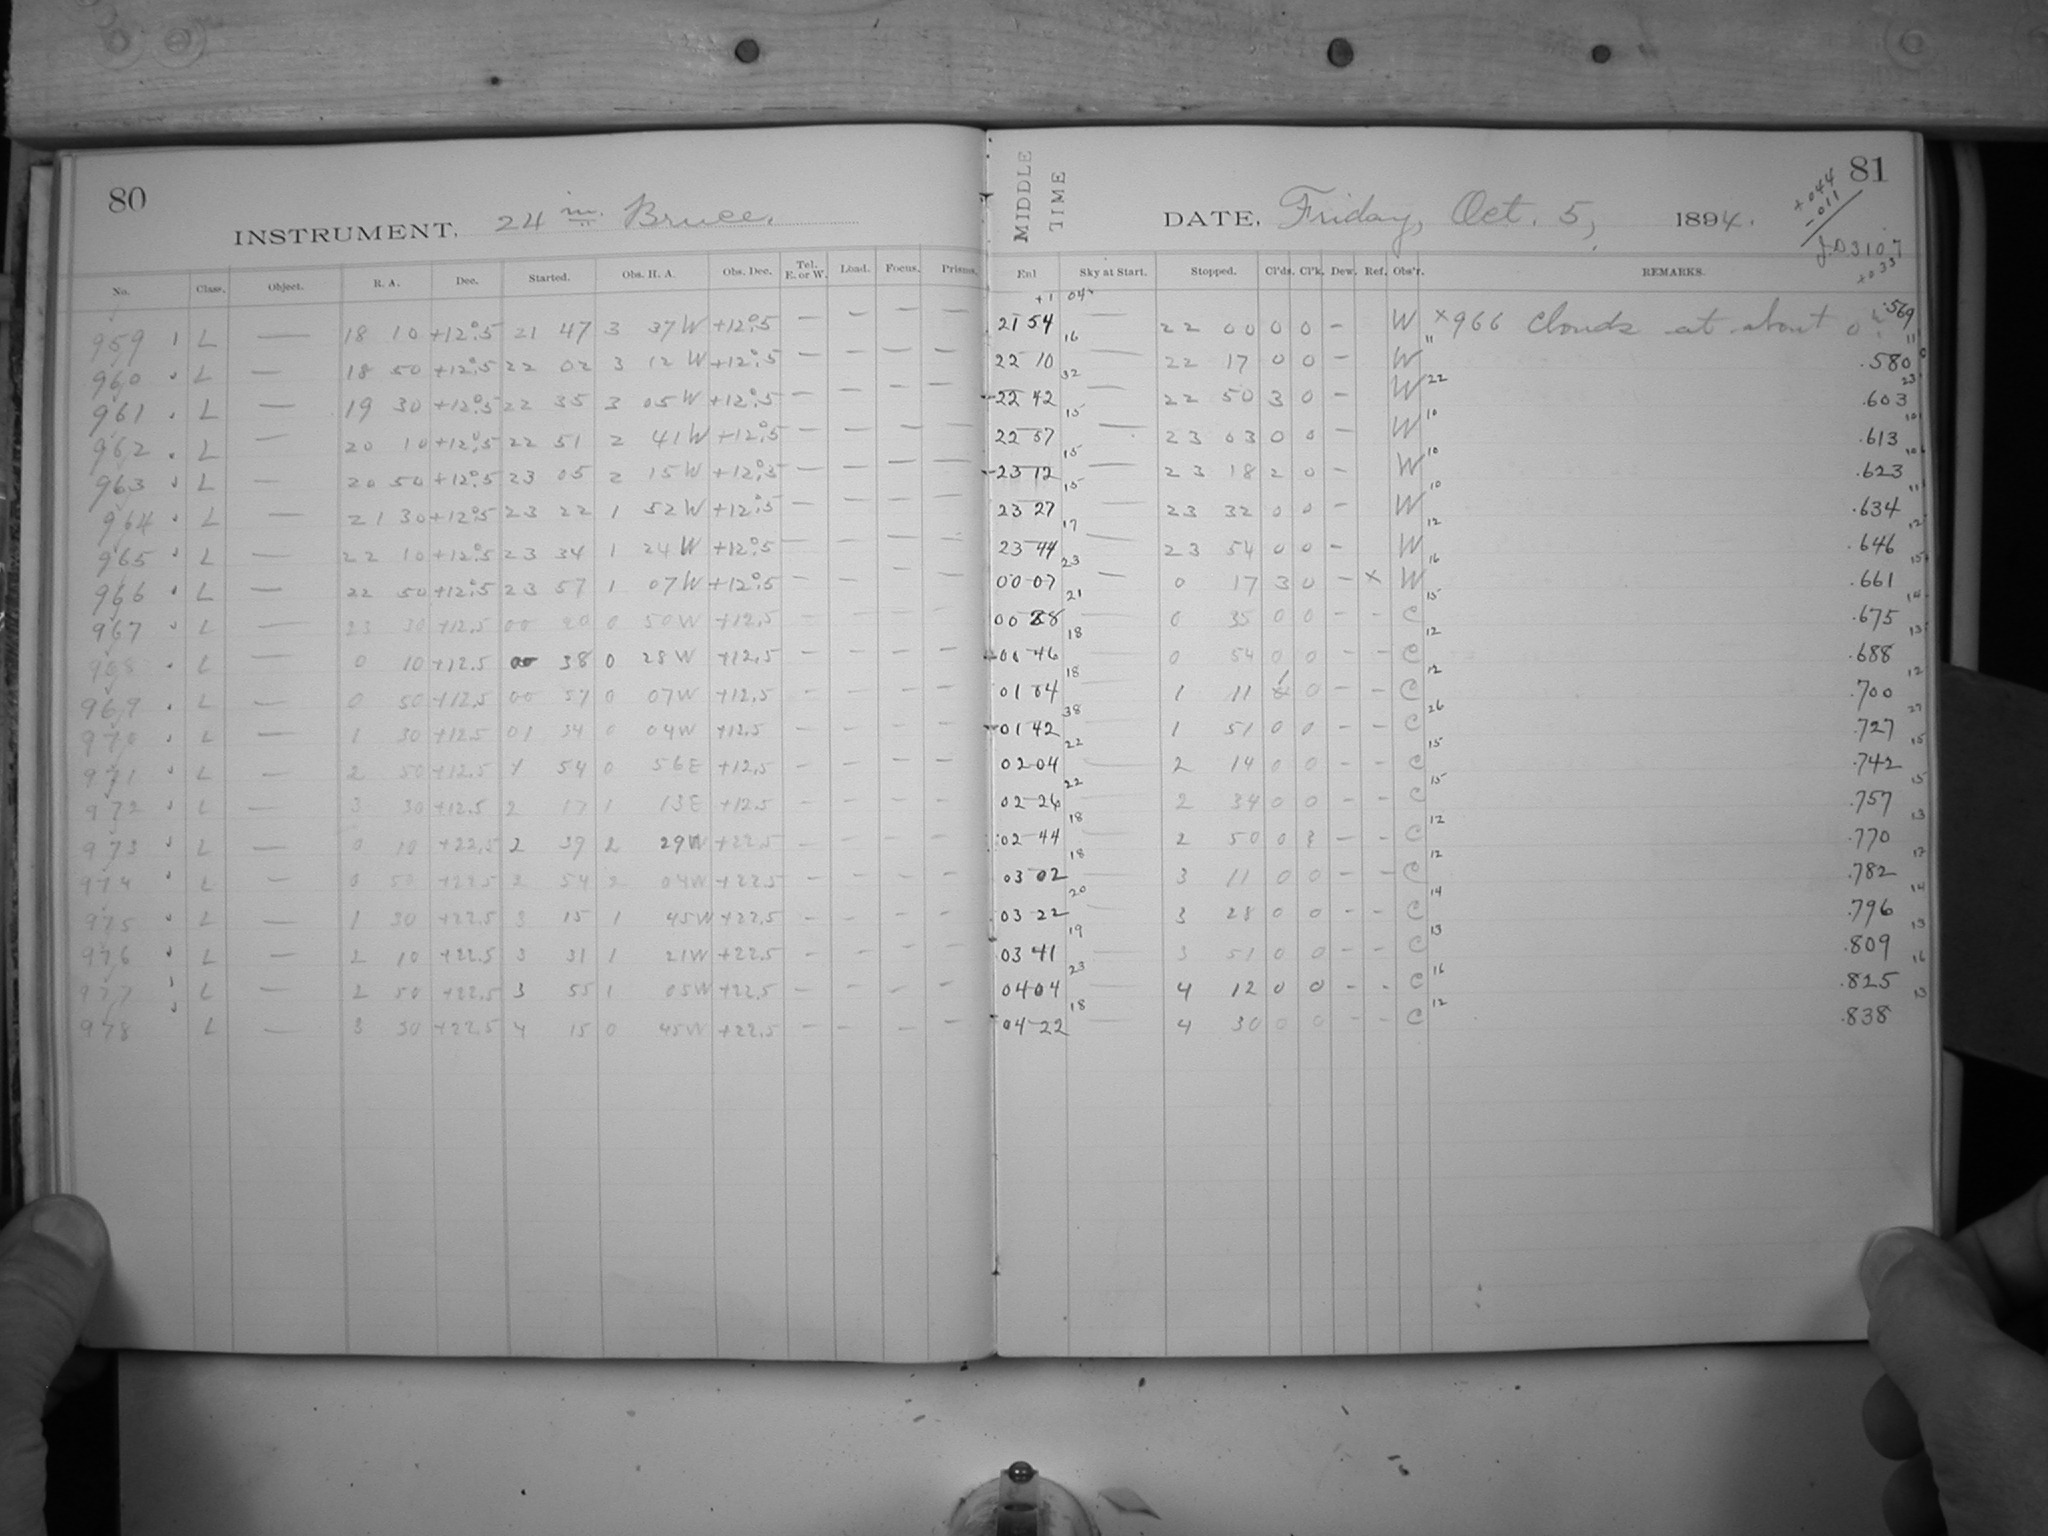 80
INSTRUMENT, 24 in. Bruce.
No. Class. Object. R. A. Dec. Started. Obs. H. A. Obs. Dec. Tel. E. or W. Load. Focus. Prisms.
959 L — 18 10 +12°.5 21 47 3 37W +12°.5 — — — —
960 L — 18 50 +12°.5 22 02 3 12W +12°.5 — — — —
961 L — 19 30 +12°.5 22 35 3 05W +12°.5 — — — —
962 L — 20 10 +12°.5 22 51 2 41W +12°.5 — — — —
963 L — 20 50 +12°.5 23 05 2 15W +12°.5 — — — —
964 L — 21 30 +12°.5 23 22 1 52W +12°.5 — — — —
965 L — 22 10 +12°.5 23 34 1 24W +12°.5 — — — —
966 L — 22 50 +12°.5 23 57 1 07W +12°.5 — — — —
967 L — 23 30 +12.5 00 20 0 50W +12.5 — — — —
968 L — 0 10 +12.5 00 38 0 28W +12.5 — — — —
969 L — 0 50 +12.5 00 57 0 07W +12.5 — — — —
970 L — 1 30 +12.5 01 34 0 04W +12.5 — — — —
971 L — 2 50 +12.5 1 54 0 56E +12.5 — — — —
972 L — 3 30 +12.5 2 17 1 13E +12.5 — — — —
973 L — 0 10 +22.5 2 39 2 29W +22.5 — — — —
974 L — 0 50 +22.5 2 54 2 04W +22.5 — — — —
975 L — 1 30 +22.5 3 15 1 45W +22.5 — — — —
976 L — 2 10 +22.5 3 31 1 21W +22.5 — — — —
977 L — 2 50 +22.5 3 55 1 05W +22.5 — — — —
978 L — 3 30 +22.5 4 15 0 45W +22.5 — — — —
MIDDLE TIME
81
DATE, Friday, Oct. 5, 1894.
+044
-011
J.D.3107
+033
Sky at Start. Stopped. Cl'ds. Cl'k. Dew. Ref. Obs'r. REMARKS.
+1 04
21 54 — 22 00 0 0 - W ×966 Clouds at about 0 .569
16 11 11
22 10 — 22 17 0 0 - W .580
32 22 23
22 42 — 22 50 3 0 - W .603
15 10 10
22 57 — 23 03 0 0 - W .613
15 10 10
23 12 — 23 18 2 0 - W .623
15 10 11
23 27 — 23 32 0 0 - W .634
17 12 12
23 44 — 23 54 0 0 - W .646
23 16 15
00 07 — 0 17 3 0 - × W .661
21 15 14
00 28 — 0 35 0 0 - - C .675
18 12 13
00 46 — 0 54 0 0 - - C .688
18 12 12
01 04 — 1 11 0 - - C .700
38 26 27
01 42 — 1 51 0 0 - - C .727
22 15 15
02 04 — 2 14 0 0 - - C .742
22 15 15
02 26 — 2 34 0 0 - - C .757
18 12 13
02 44 — 2 50 0 - - C .770
18 12 12
03 02 — 3 11 0 0 - - C .782
20 14 14
03 22 — 3 28 0 0 - - C .796
19 13 13
03 41 — 3 51 0 0 - - C .809
23 16 16
04 04 — 4 12 0 0 - - C .825
18 12 13
04 22 — 4 30 0 0 - - C .838